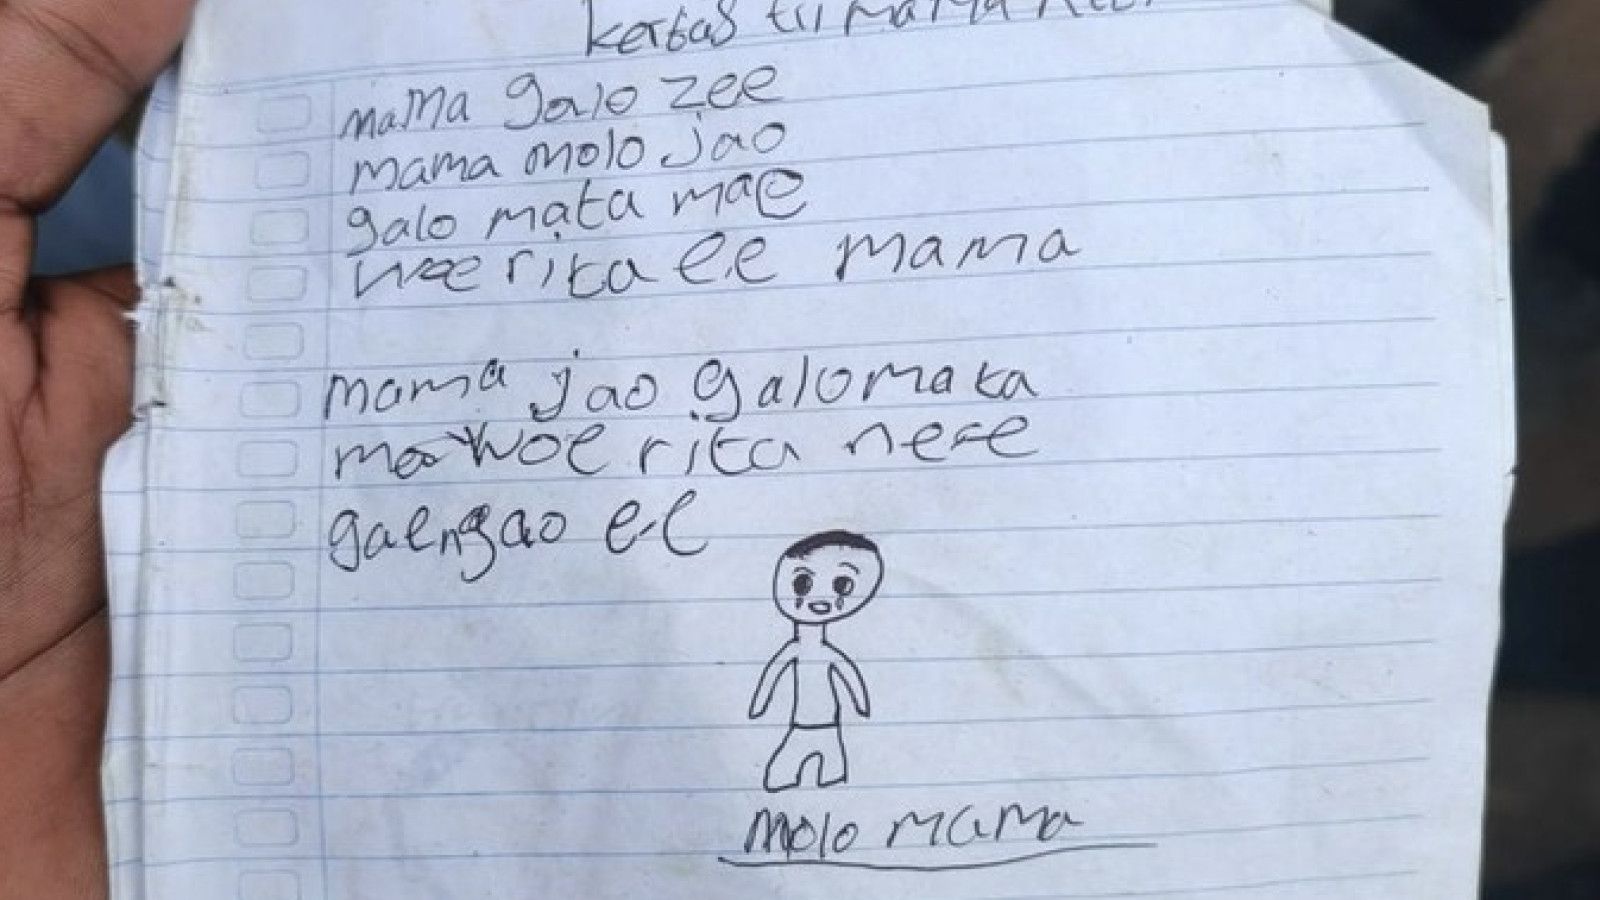 kertas tii mama
mama galo zee
mama molo jao
galo mata mae
woe rita ee mama
mama jao galo mata
mae woe rita ne-e
gae ngao ee
molo mama